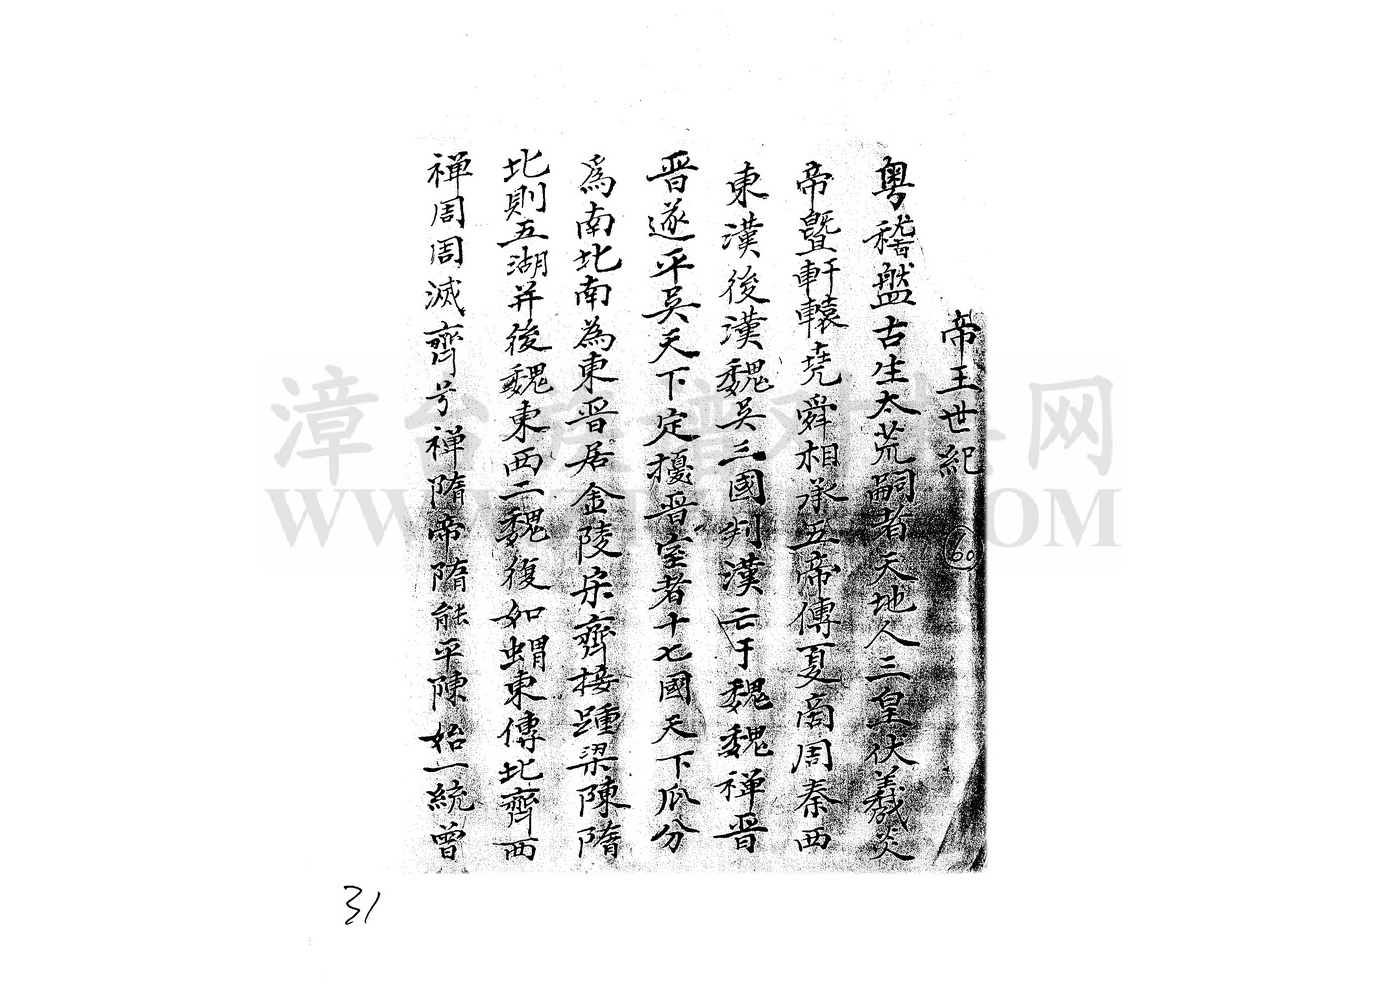 帝王世紀
100
粵稽盤古生太荒嗣者天地人三皇伏羲炎
帝暨軒轅堯舜相承五帝傳夏商周秦西
東漢後漢魏吳三國判漢亡于魏魏禅晋
晋遂平吳天下定擾晋室者十七國天下瓜分
爲南北南為東晋居金陵宋齊接踵梁陳隋
北則五湖并後魏東西二魏復如蝟東傳北齊西
禅周周滅齊号禅隋帝隋能平陳始一統曾
漳台族谱对接网
WWW.ZTZUPU.COM
31